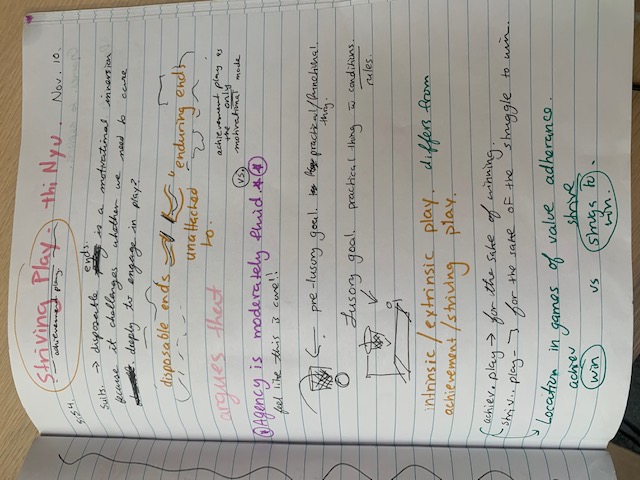 Striving Play. thi Nyu. Nov. 10.
achievement play.
5:54.
ends.
Suits. → disposable is a motivational inversion
because it challenges whether we need to care
deeply to engage in play?
disposable ends "enduring ends
unattached
to.
achievement play vs
the only
motivational mode
argues that
vs.
Agency is moderately fluid.
feel like this is core!!
pre-lusory goal. practical/functional.
thing.
Lusory goal. practical thing w conditions.
rules.
intrinsic/extrinsic play. differs from
achievement/striving play.
achiev. play → for the sake of winning.
striv.. play → for the sake of the struggle to win.
Location in games of value adherance.
achiev strive
win vs strugs to
win.